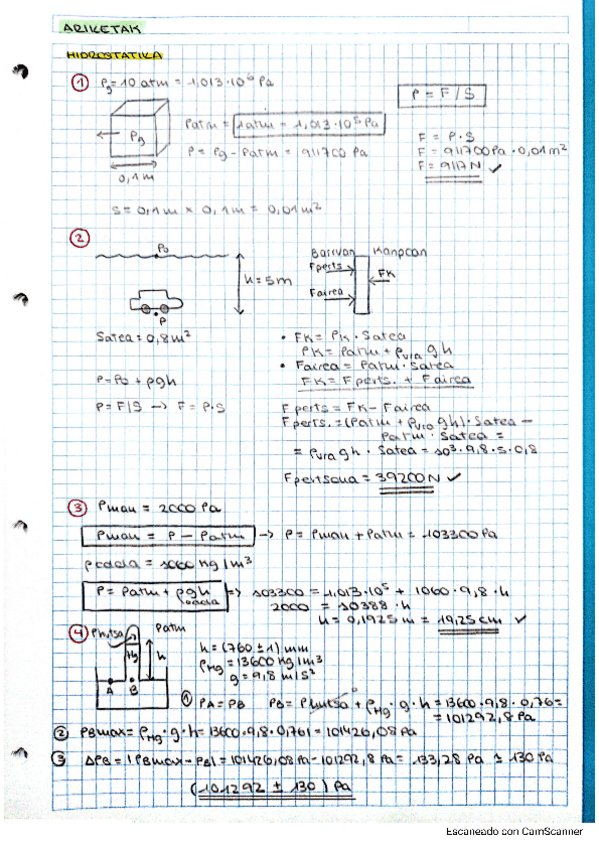 ARIKETAK
HIDROSTATIKA
① Pg = 10 atm = 1,013·10⁶ Pa
P = F/S
Pg
Patm = 1atm = 1,013·10⁵ Pa
P = Pg - Patm = 911700 Pa
0,1 m
F = P·S
F = 911700 Pa · 0,01 m²
F = 9117 N ✓
S = 0,1 m × 0,1 m = 0,01 m²
②
Po
h = 5m
P
Barruan Kanpoan
Fperts
FK
Fairea
Satea = 0,8 m²
• FK = PK · Satea
PK = Patm + ρura g h
• Fairea = Patm · Satea
FK = Fperts. + Fairea
P = Po + ρgh
P = F/S → F = P·S
Fperts = FK - Fairea
Fperts. = (Patm + ρura gh) · Satea -
Patm · Satea =
= ρura gh · Satea = 10³ · 9,8 · 5 · 0,8
Fpertsona = 39200 N ✓
③ Pman = 2000 Pa
Pman = P - Patm → P = Pman + Patm = 103300 Pa
ρodola = 1060 kg/m³
P = Patm + ρodola gh => 103300 = 1,013·10⁵ + 1060 · 9,8 · h
2000 = 10388 · h
h = 0,1925 m = 19,25 cm ✓
④ Phutsa Patm
Hg
h
A B
h = (760 ± 1) mm
ρHg = 13600 kg/m³
g = 9,8 m/s²
① PA = PB PB = Phutsa⁰ + ρHg · g · h = 13600 · 9,8 · 0,76 =
= 101292,8 Pa
② PBmax = ρHg · g · h = 13600 · 9,8 · 0,761 = 101426,08 Pa
③ ΔPB = |PBmax - PB| = 101426,08 Pa - 101292,8 Pa = 133,28 Pa ≃ 130 Pa
(101292 ± 130) Pa
Escaneado con CamScanner